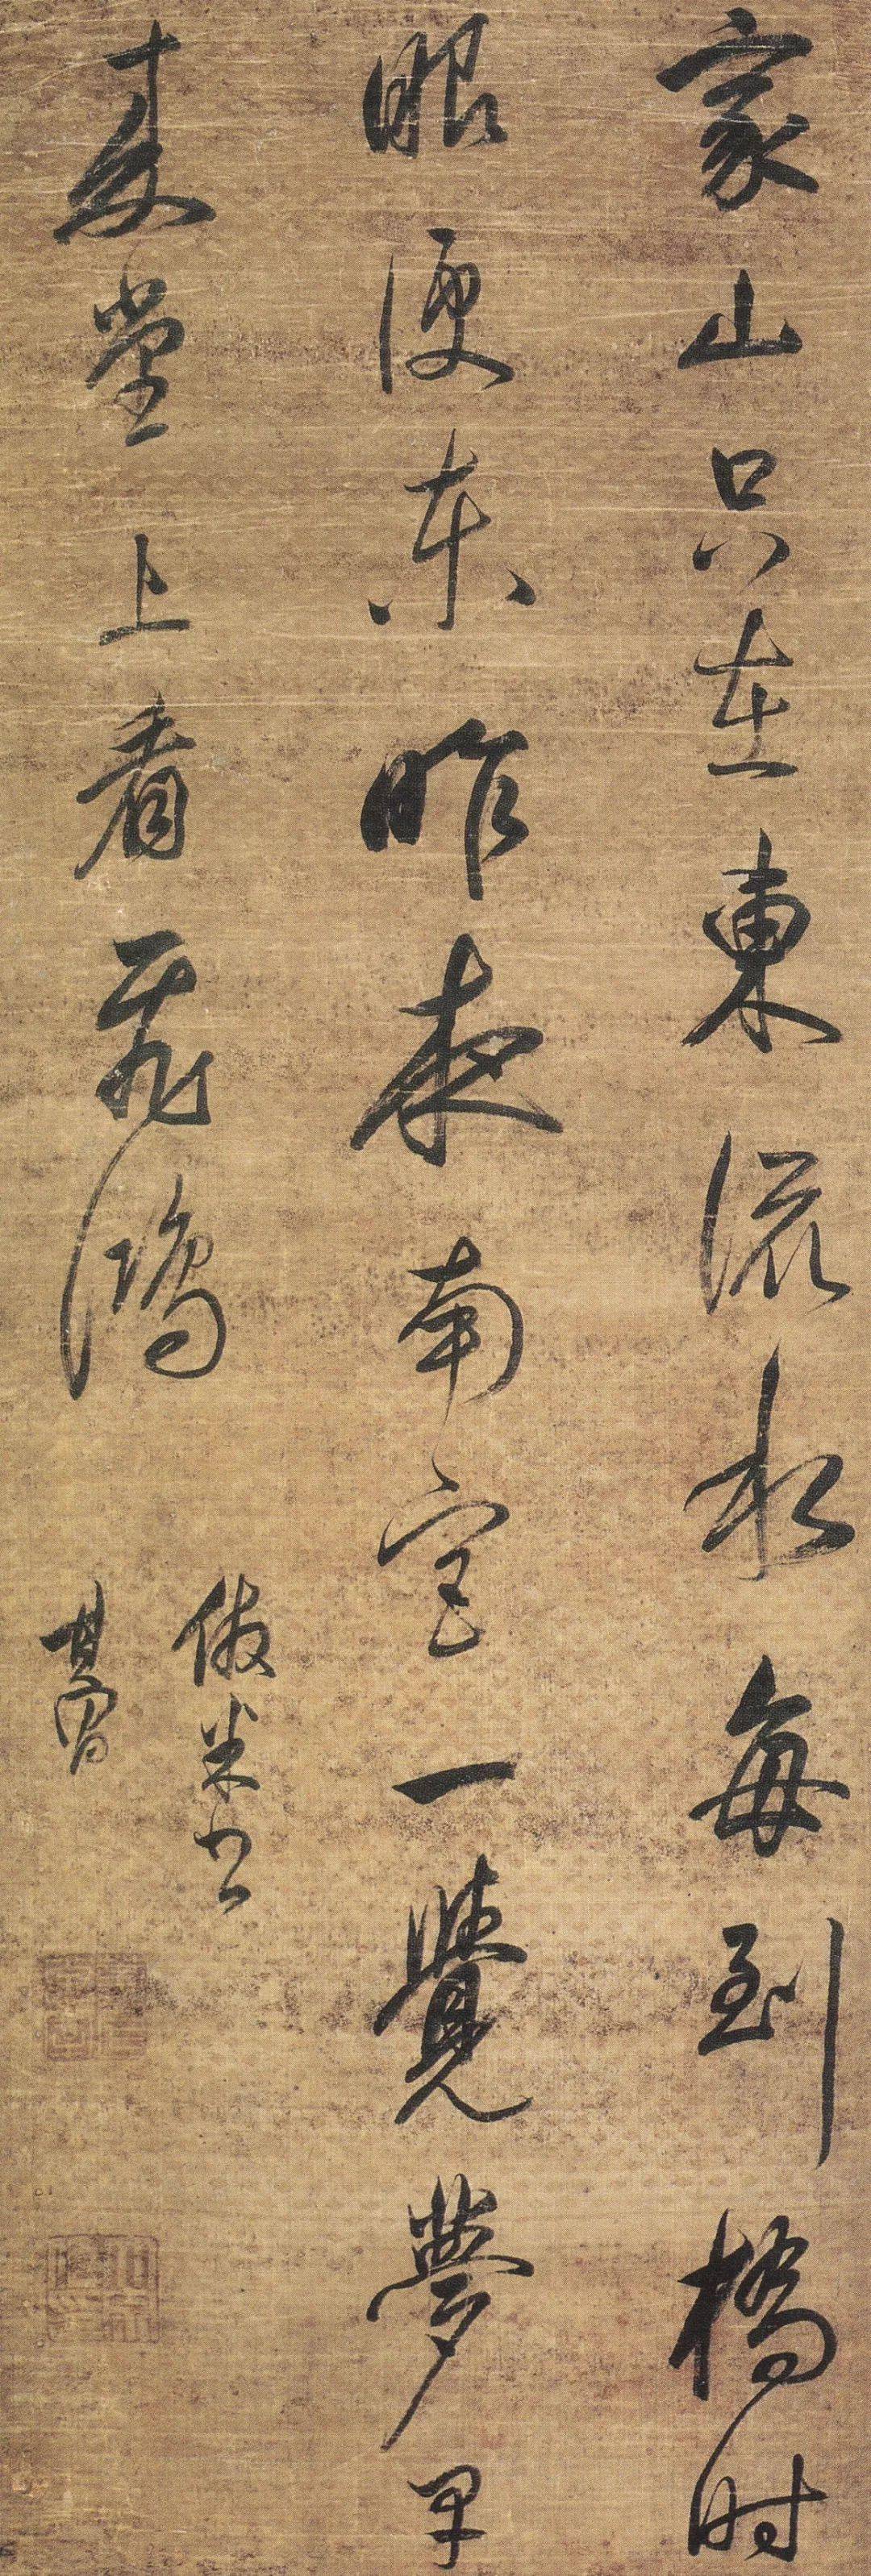 家山只在東流水每到橋時
眼便东昨夜南室一覺夢早
堂上看飛鴻
倣米書
其昌